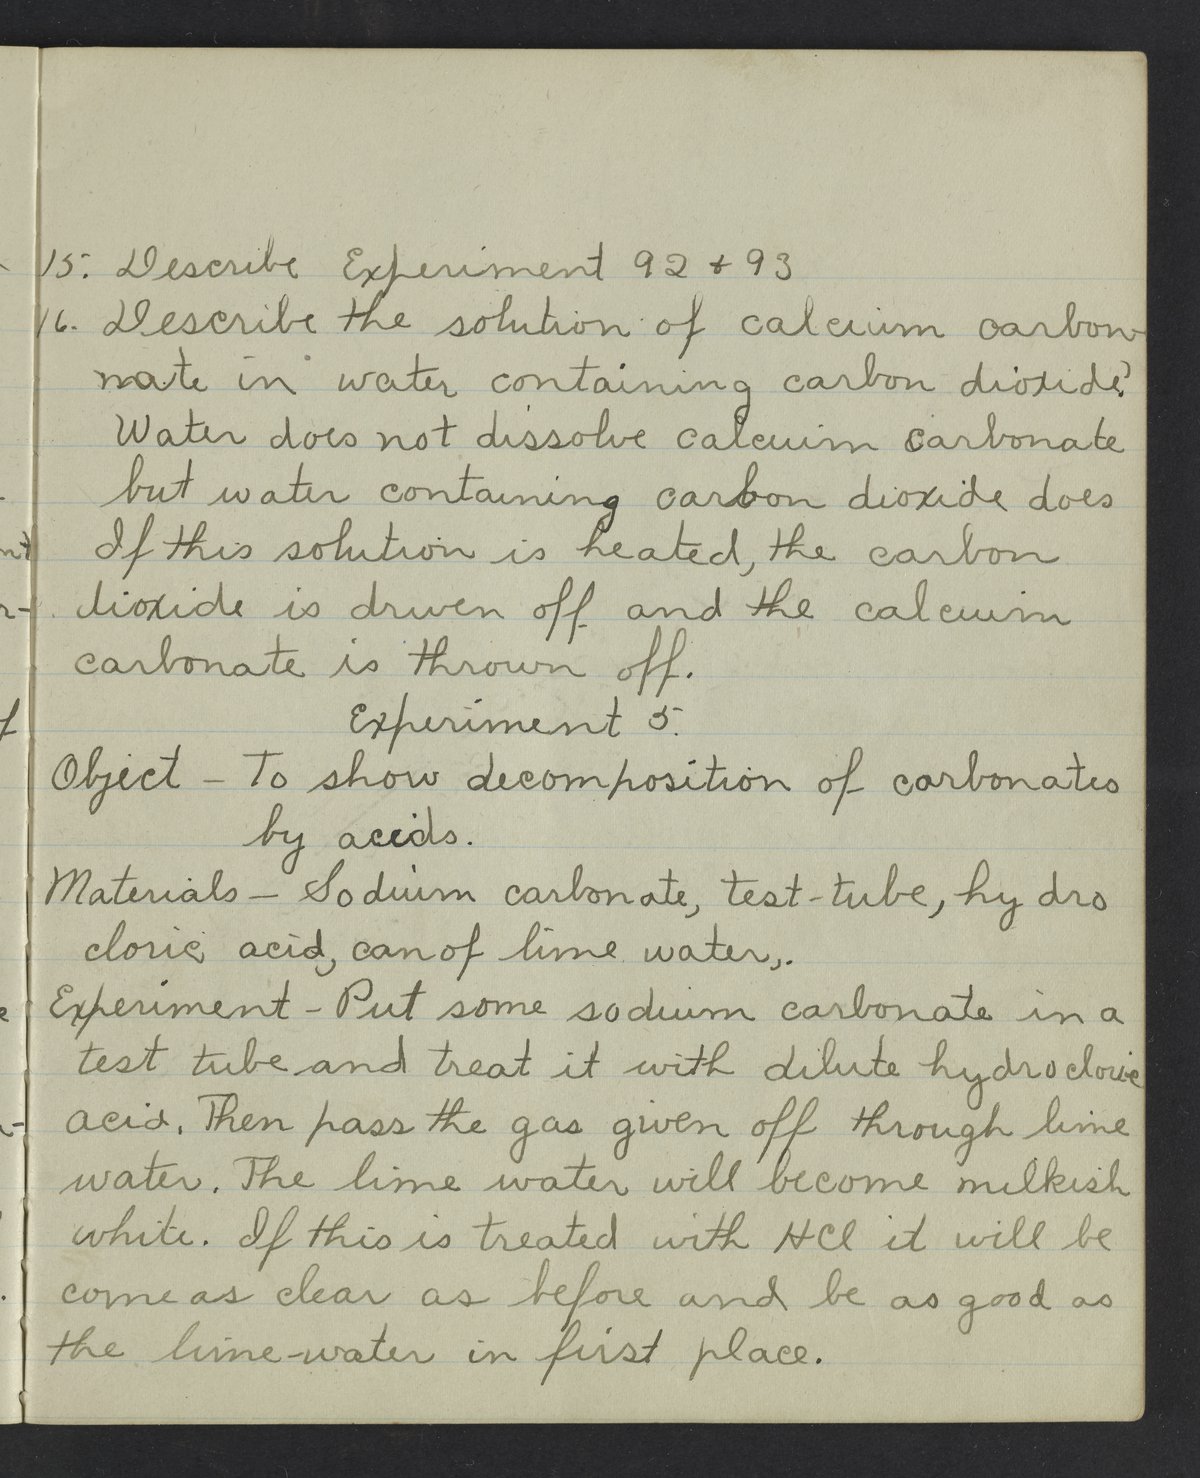 15. Describe Experiment 92 + 93
16. Describe the solution of calcium carbon-
nate in water containing carbon dioxide?
Water does not dissolve calcuim carbonate
but water containing carbon dioxide does
If this solution is heated, the carbon
dioxide is driven off and the calcuim
carbonate is thrown off.
Experiment 5.
Object - To show decomposition of carbonates
by acids.
Materials - Sodium carbonate, test-tube, hydro
cloric acid, can of lime water,.
Experiment - Put some sodium carbonate in a
test tube and treat it with dilute hydrocloric
acid. Then pass the gas given off through lime
water. The lime water will become milkish
white. If this is treated with HCl it will be
come as clear as before and be as good as
the lime-water in first place.